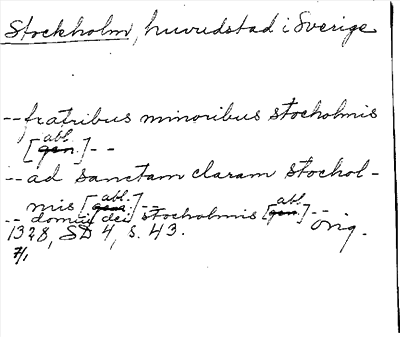 Stockholm, huvudstad i Sverige
-- fratribus minoribus stocholmis
[abl. gen.] --
-- ad sanctam claram stochol-
mis [abl. gen.] --
-- domui dei stocholmis [abl. gen.] --
1328, SD 4, s. 43. Orig.
7/1